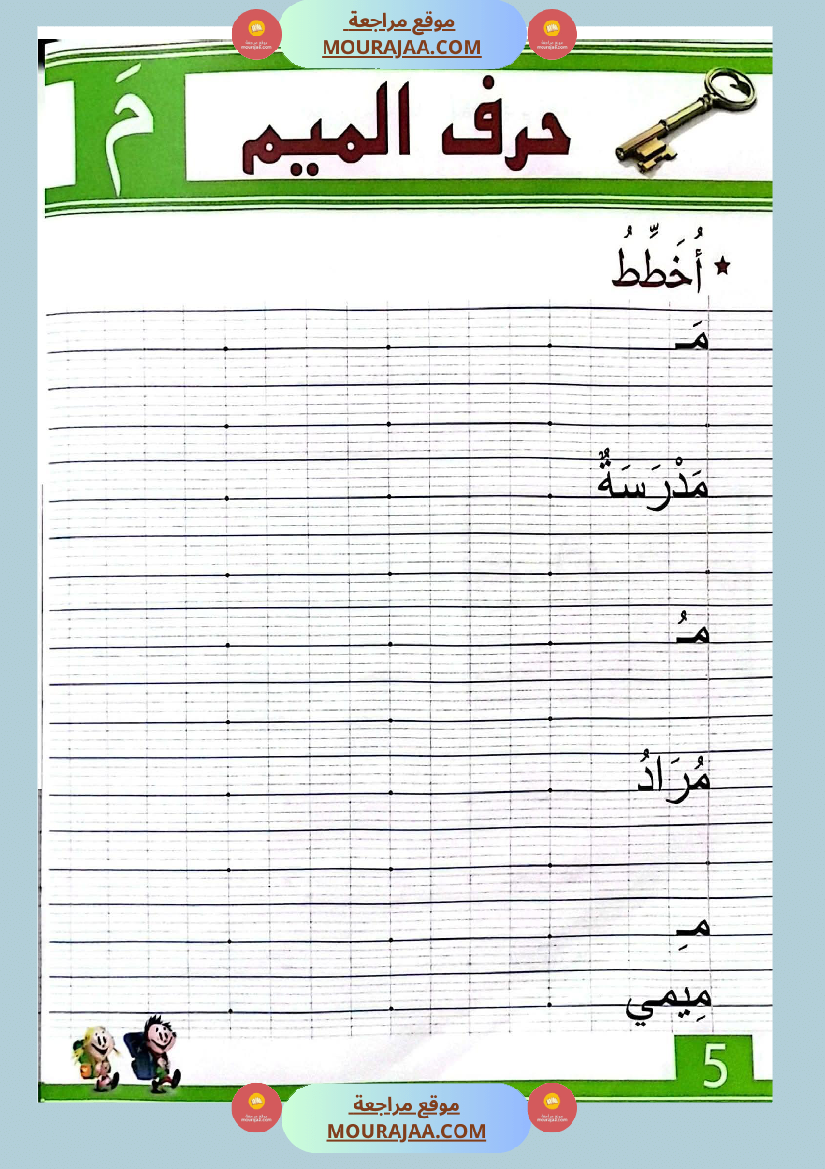 موقع مراجعة
MOURAJAA.COM
حرف الميم
مَ
★ أُخَطِّطُ
مَـ
مَدْرَسَةٌ
مـُ
مُرَادُ
مـِ
مِيمِي
5
موقع مراجعة
MOURAJAA.COM